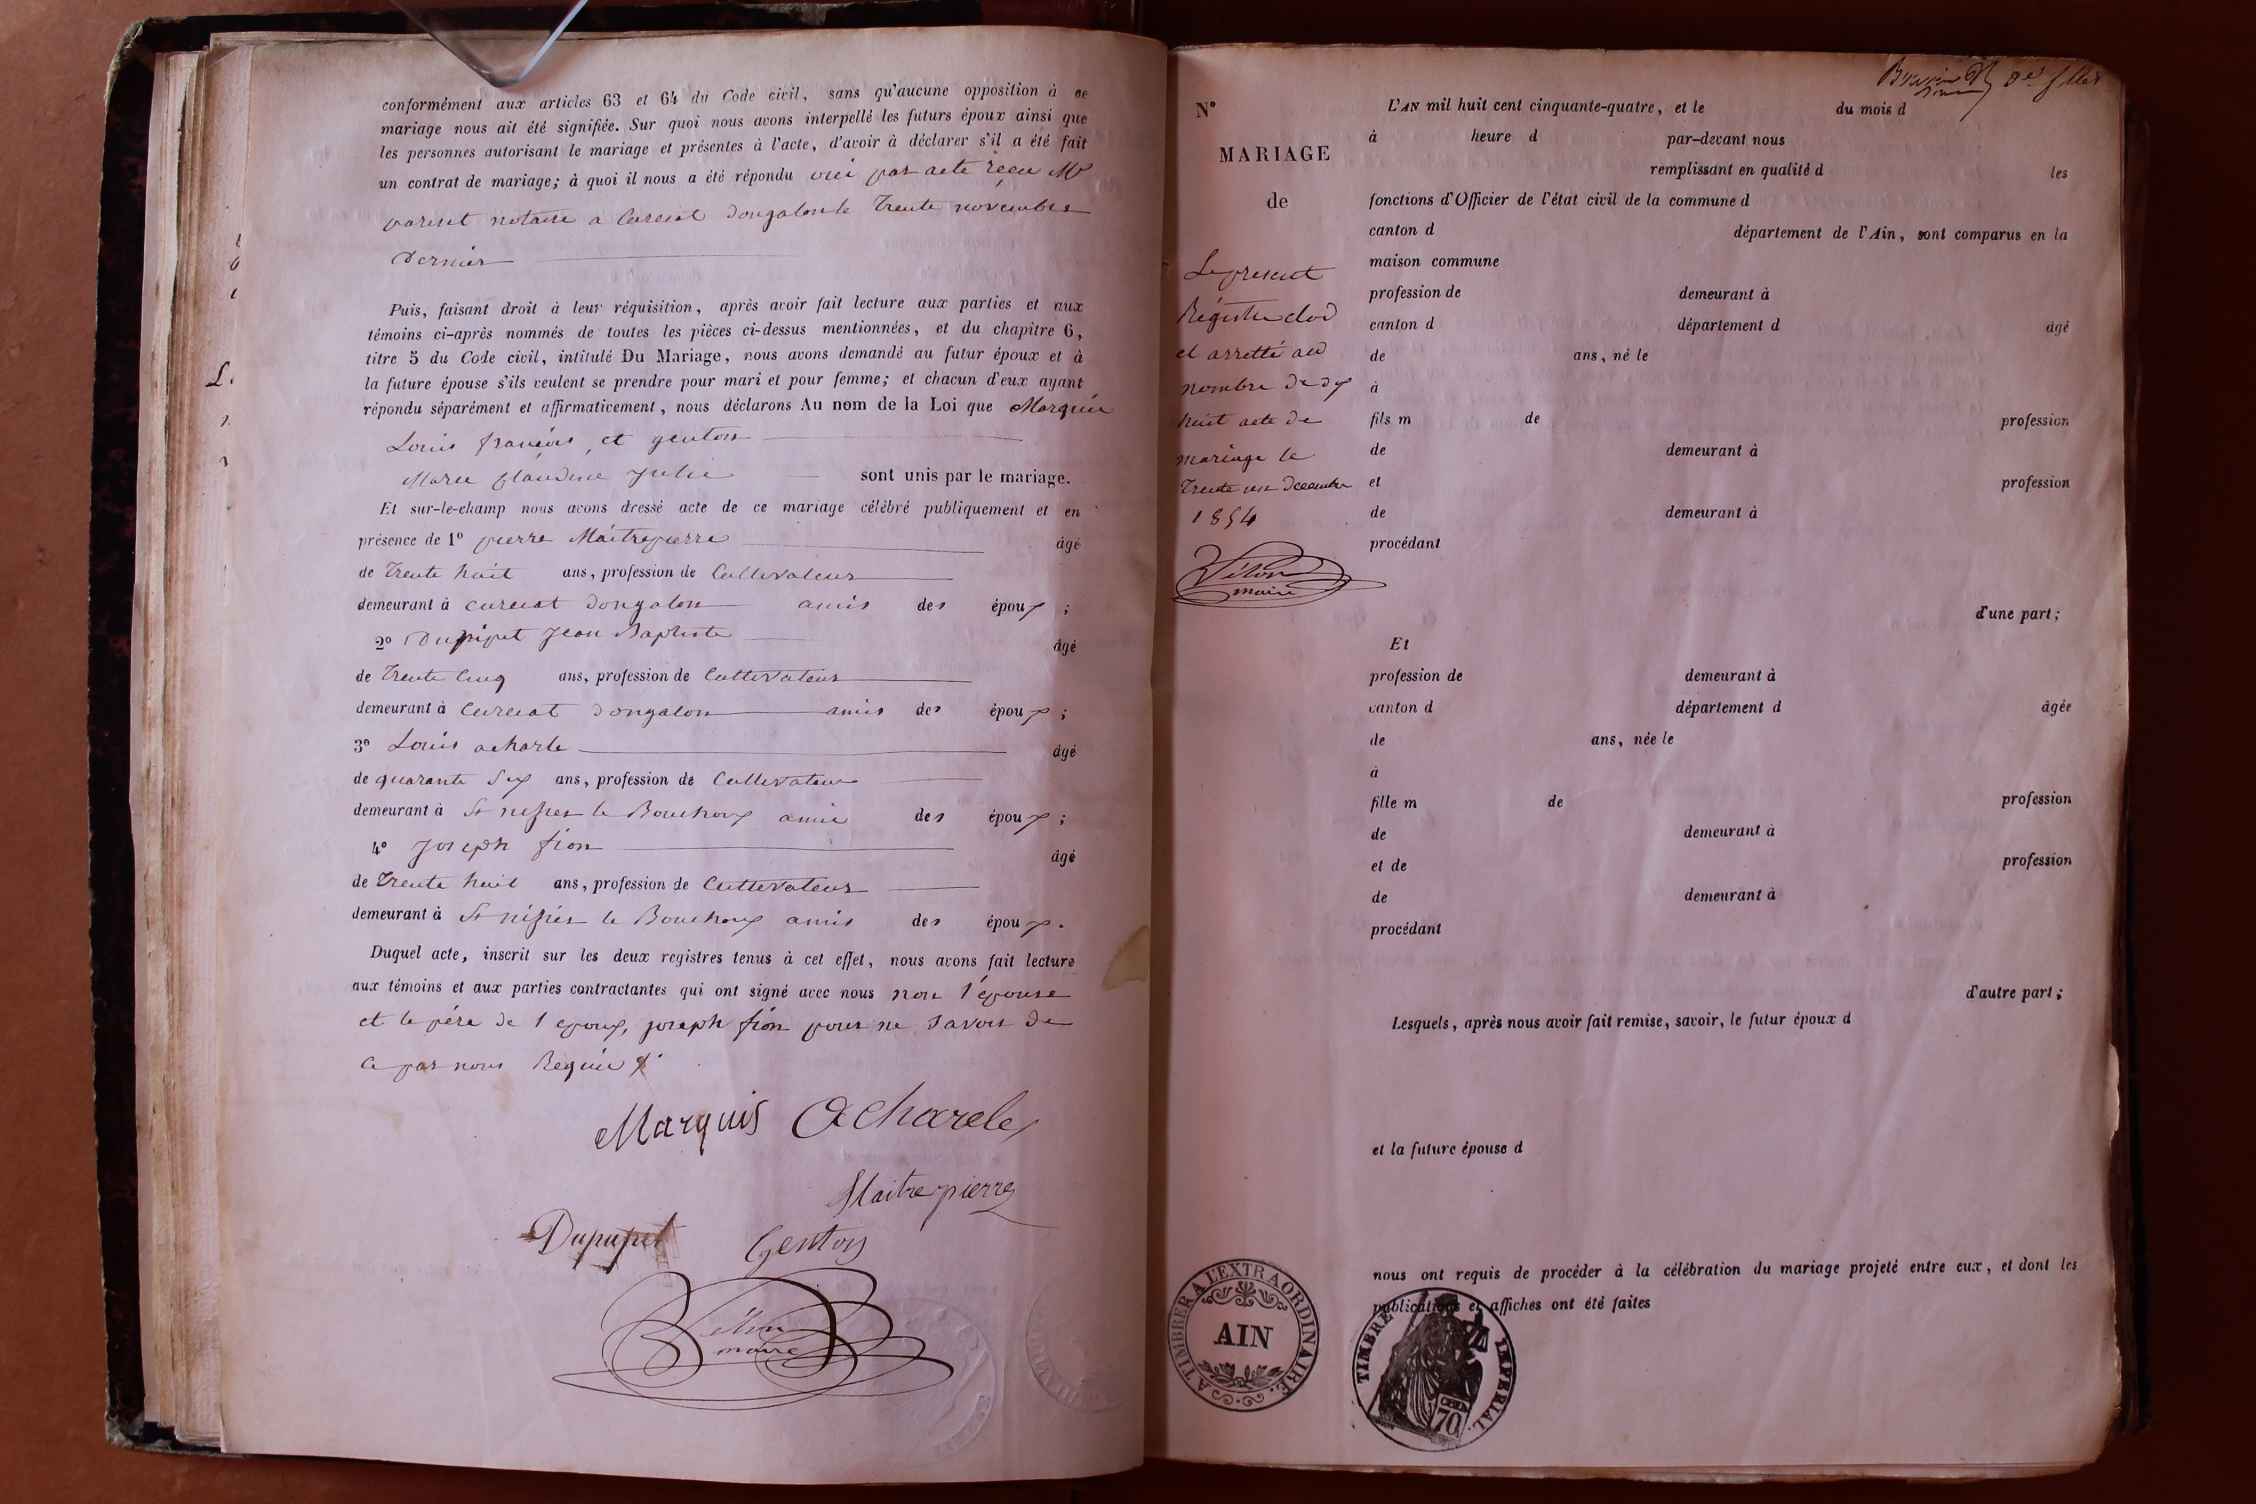 conformément aux articles 63 et 64 du Code civil, sans qu'aucune opposition à ce
mariage nous ait été signifiée. Sur quoi nous avons interpellé les futurs époux ainsi que
les personnes autorisant le mariage et présentes à l'acte, d'avoir à déclarer s'il a été fait
un contrat de mariage; à quoi il nous a été répondu oui par acte reçu Me
notaire a Curciat dongalon le trente novembre
dernier
Puis, faisant droit à leur réquisition, après avoir fait lecture aux parties et aux
témoins ci-après nommés de toutes les pièces ci-dessus mentionnées, et du chapitre 6,
titre 5 du Code civil, intitulé Du Mariage, nous avons demandé au futur époux et à
la future épouse s'ils veulent se prendre pour mari et pour femme; et chacun d'eux ayant
répondu séparément et affirmativement, nous déclarons Au nom de la Loi que Marquis
Louis françois, et genton
Marie claudine Julie sont unis par le mariage.
Et sur-le-champ nous avons dressé acte de ce mariage célébré publiquement et en
présence de 1º pierre Maitrepierre âgé
de trente huit ans, profession de Cultivateur
demeurant à curciat dongalon amis des époux ;
2º Dupupet Jean Baptiste âgé
de trente Cinq ans, profession de Cultivateur
demeurant à Curciat dongalon amis des époux ;
3º Louis acharle âgé
de quarante Six ans, profession de Cultivateur
demeurant à St nisier le Bouchoux amis des époux ;
4º joseph fion âgé
de trente huit ans, profession de Cultivateur
demeurant à St nisier le Bouchoux amis des époux.
Duquel acte, inscrit sur les deux registres tenus à cet effet, nous avons fait lecture
aux témoins et aux parties contractantes qui ont signé avec nous non l'épouse
et le père de l epoux, joseph fion pour ne savoir de
ce par nous Requis
Marquis Acharcle
Maitrepierre
Dupupet Genton
maire
Nº
MARIAGE
de
Le present
Régistre clos
et arretté au
nombre de dix
huit acte de
mariage le
trente un decembre
1854
maire
L'AN mil huit cent cinquante-quatre, et le du mois d
à heure d par-devant nous
remplissant en qualité d les
fonctions d'Officier de l'état civil de la commune d
canton d département de l'Ain, sont comparus en la
maison commune
profession de demeurant à
canton d département d âgé
de ans, né le
à
fils m de profession
de demeurant à
et profession
de demeurant à
procédant
d'une part;
Et
profession de demeurant à
canton d département d âgée
de ans, née le
à
fille m de profession
de demeurant à
et de profession
de demeurant à
procédant
d'autre part;
Lesquels, après nous avoir fait remise, savoir, le futur époux d
et la future épouse d
nous ont requis de procéder à la célébration du mariage projeté entre eux, et dont les
publications et affiches ont été faites
A TIMBRER A L'EXTRAORDINAIRE.
AIN
TIMBRE IMPERIAL.
70